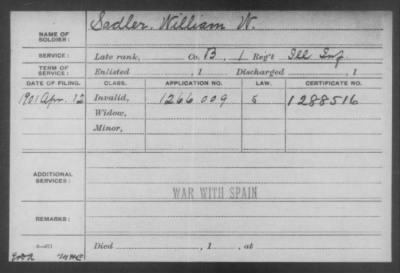 NAME OF SOLDIER: Sadler, William W.
SERVICE: Late rank, Co. B, 1 Reg't Ill Inf
TERM OF SERVICE: Enlisted , 1 Discharged , 1
DATE OF FILING. CLASS. APPLICATION NO. LAW. CERTIFICATE NO.
1901 Apr. 12 Invalid, 1266009 5 1288516
Widow,
Minor,
ADDITIONAL SERVICES:
WAR WITH SPAIN
REMARKS:
Died , 1 , at